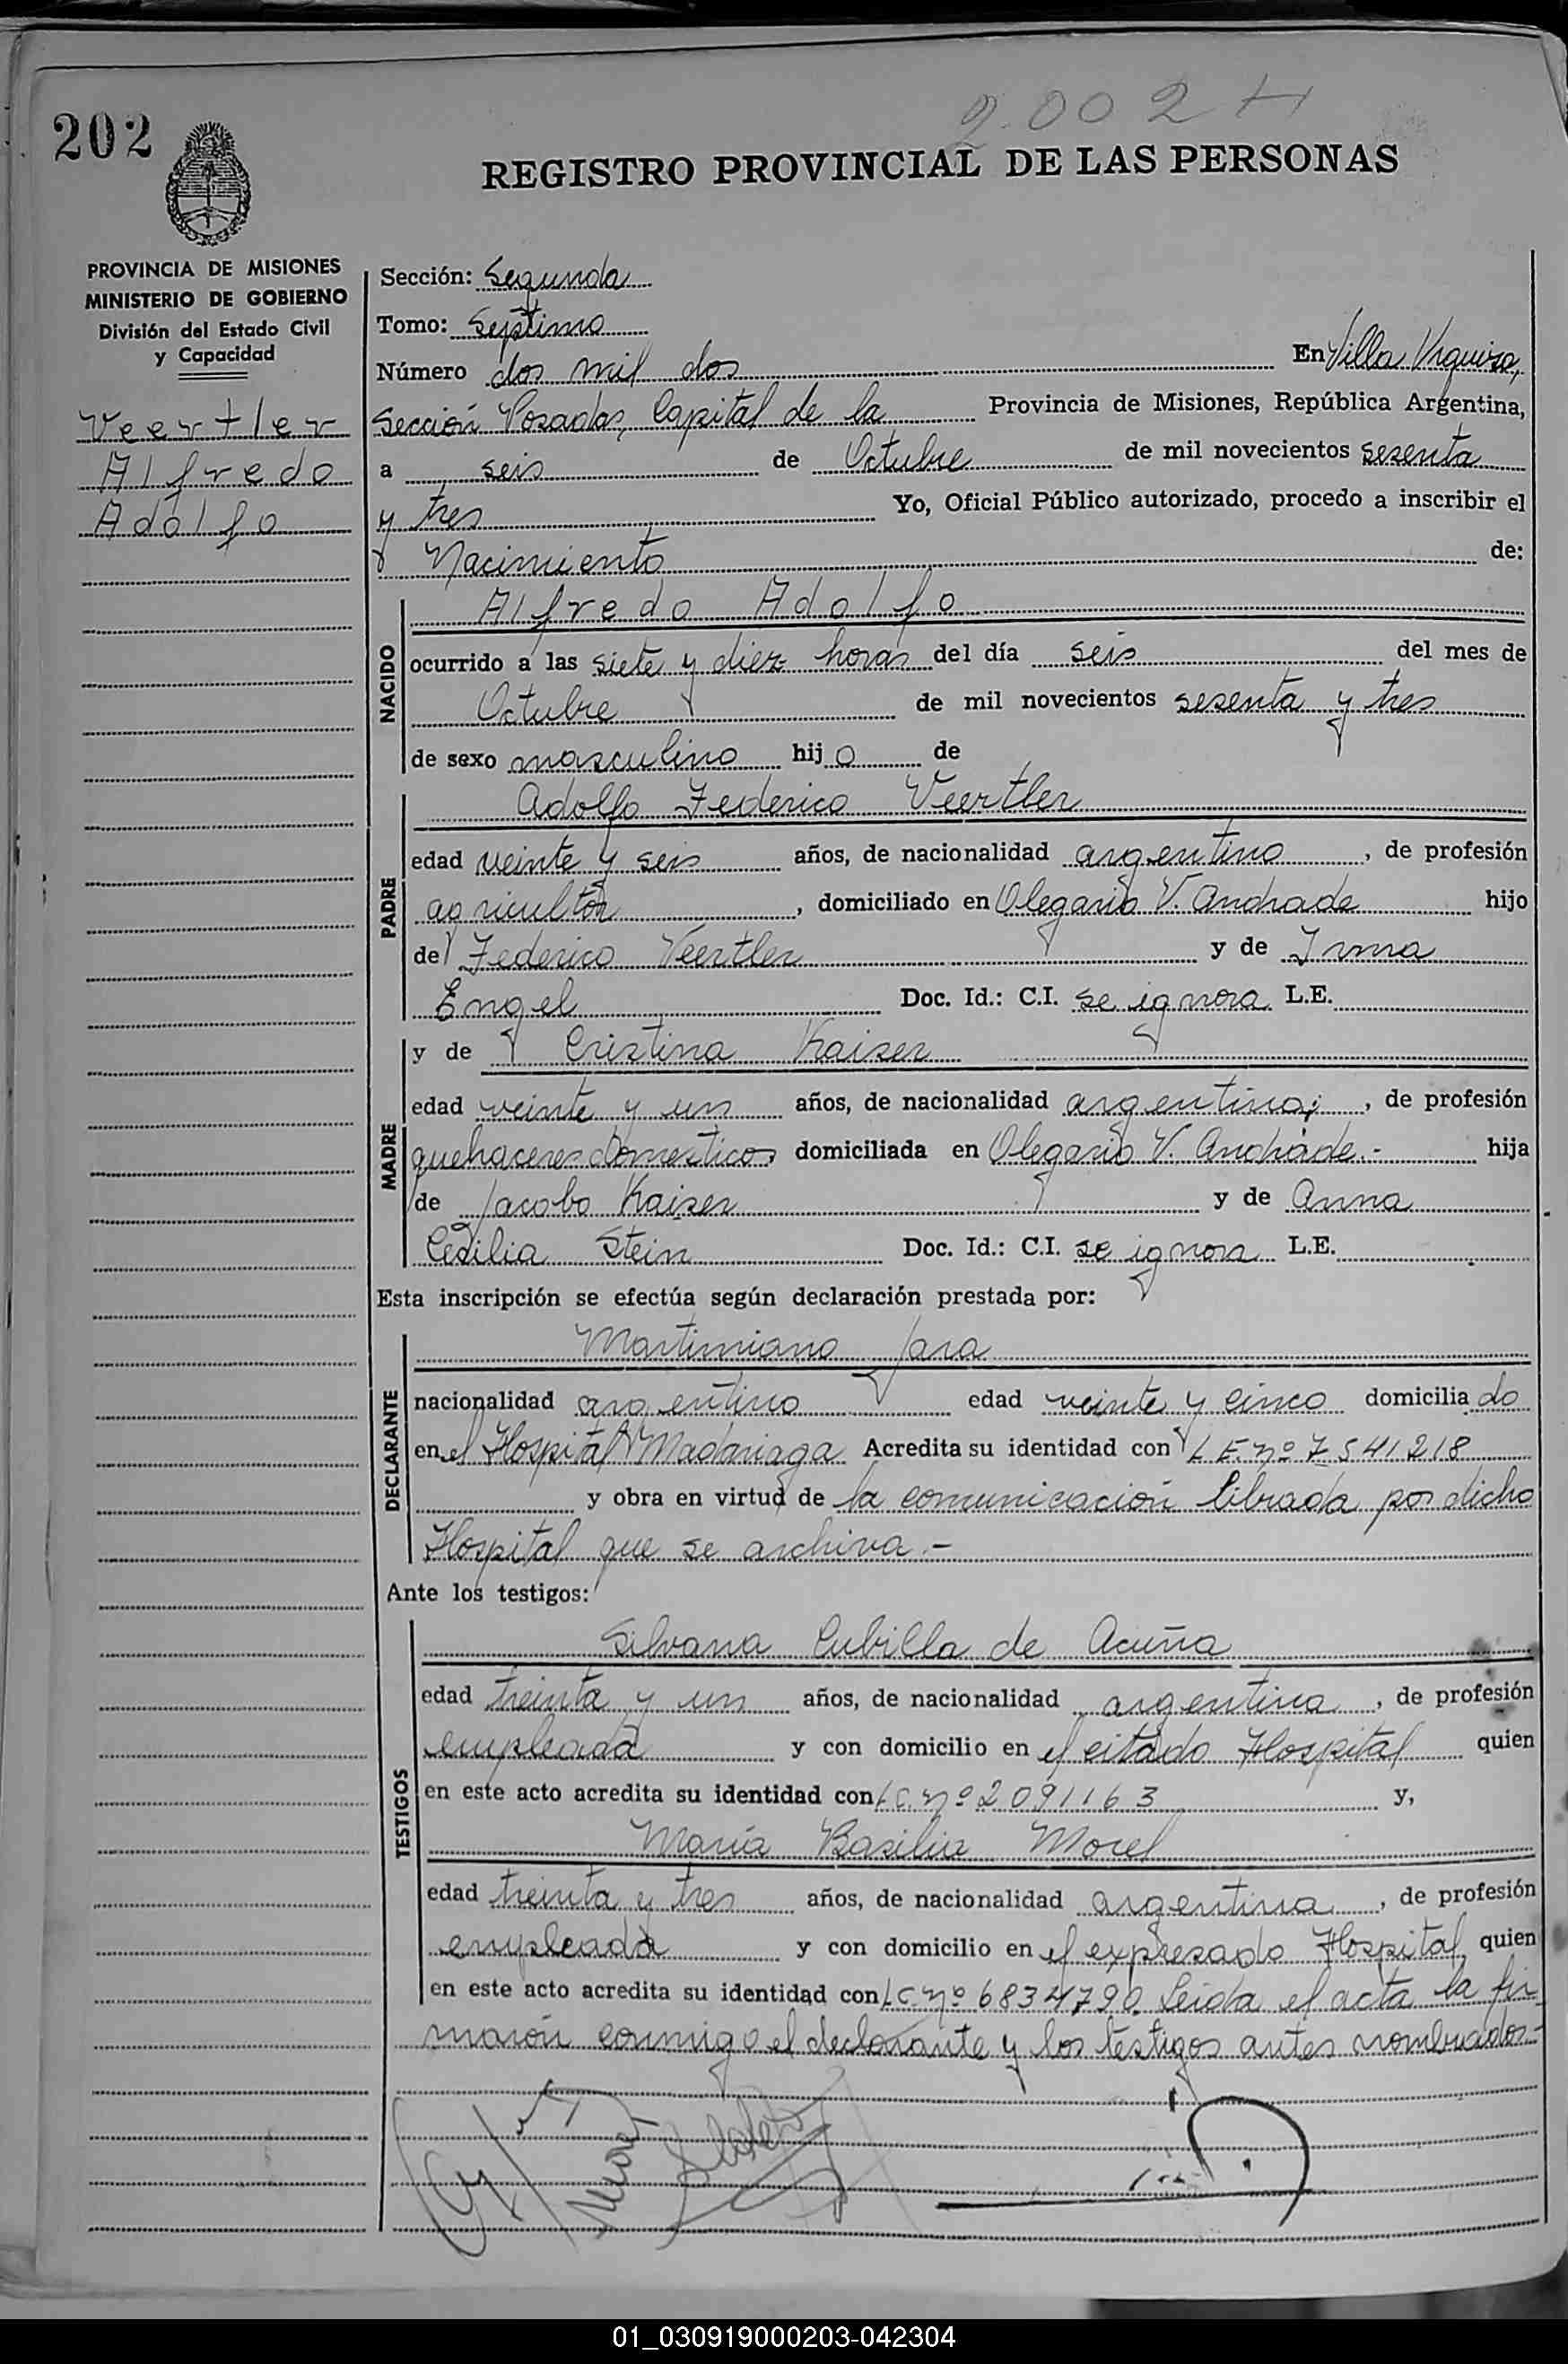 202
2.002
REGISTRO PROVINCIAL DE LAS PERSONAS
PROVINCIA DE MISIONES
MINISTERIO DE GOBIERNO
División del Estado Civil
y Capacidad
Veertler
Alfredo
Adolfo
Sección: Segunda
Tomo: Septimo
Número dos mil dos En Villa Urquiza,
Sección Posadas, Capital de la Provincia de Misiones, República Argentina,
a seis de Octubre de mil novecientos sesenta
y tres Yo, Oficial Público autorizado, procedo a inscribir el
Nacimiento de:
NACIDO
Alfredo Adolfo
ocurrido a las siete y diez horas del día seis del mes de
Octubre de mil novecientos sesenta y tres
de sexo masculino hijo de
PADRE
Adolfo Federico Veertler
edad veinte y seis años, de nacionalidad argentino, de profesión
agricultor, domiciliado en Olegario V. Andrade hijo
de Federico Veertler y de Irma
Engel Doc. Id.: C.I. se ignora L.E.
MADRE
y de Cristina Kaiser
edad veinte y un años, de nacionalidad argentina, de profesión
quehaceres domesticos domiciliada en Olegario V. Andrade.- hija
de Jacobo Kaiser y de Anna
Cecilia Stein Doc. Id.: C.I. se ignora L.E.
Esta inscripción se efectúa según declaración prestada por:
DECLARANTE
Martimiano Jara
nacionalidad argentino edad veinte y cinco domiciliado
en el Hospital Madariaga Acredita su identidad con L.E. nº 7541218
y obra en virtud de la comunicación librada por dicho
Hospital que se archiva.-
Ante los testigos:
TESTIGOS
Silvana Cubilla de Acuña
edad treinta y un años, de nacionalidad argentina, de profesión
empleada y con domicilio en el citado Hospital quien
en este acto acredita su identidad con L.C. nº 2091163 y,
María Basilia Morel
edad treinta y tres años, de nacionalidad argentina, de profesión
empleada y con domicilio en el expresado Hospital, quien
en este acto acredita su identidad con L.C. nº 6834790. Leida el acta la fir
maron conmigo el declarante y los testigos antes nombrados.-
01_030919000203-042304